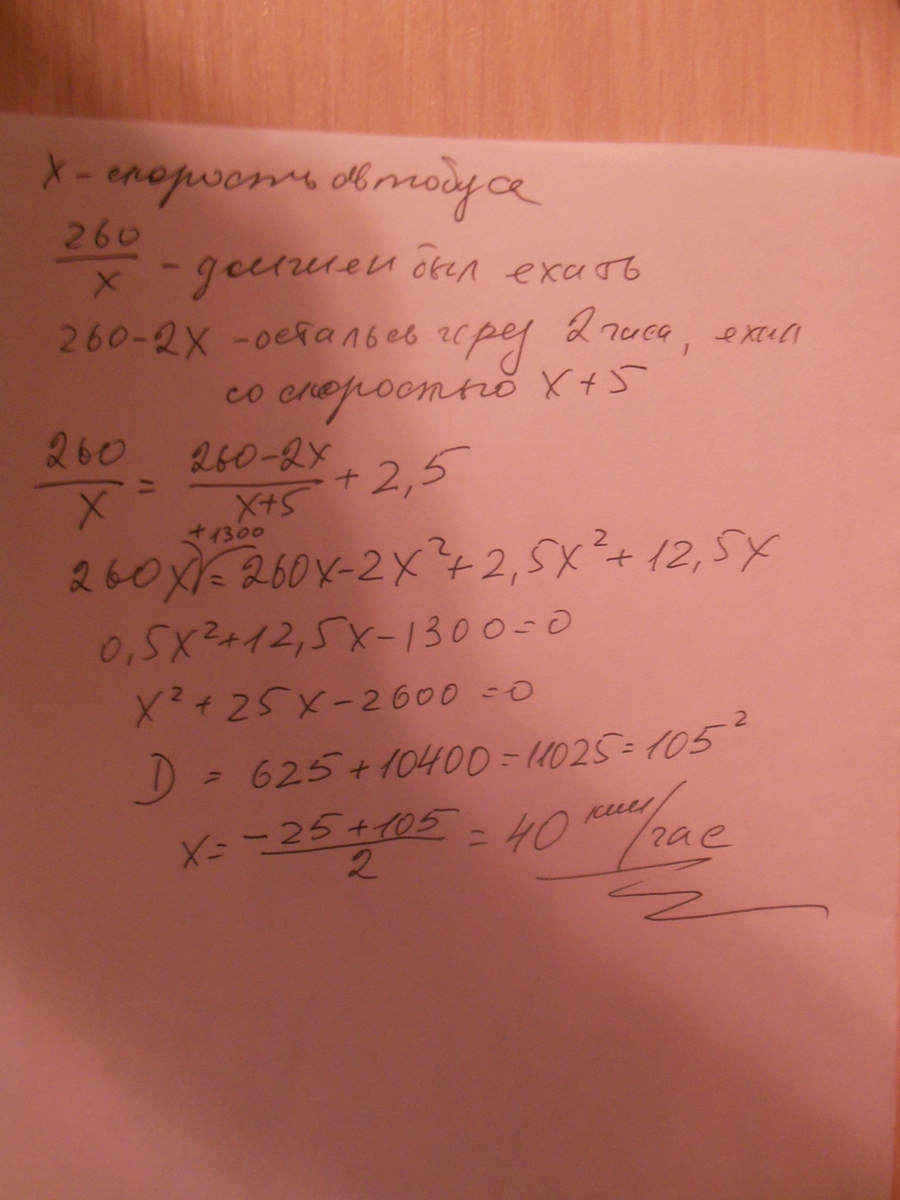 x - скорость автобуса
260/x - должен был ехать
260-2x - осталось через 2 часа, ехал
со скоростью x+5
260/x = (260-2x)/(x+5) + 2,5
+1300
260x = 260x-2x²+2,5x²+12,5x
0,5x²+12,5x-1300=0
x²+25x-2600=0
D = 625+10400=11025=105²
x = (-25+105)/2 = 40 км/час